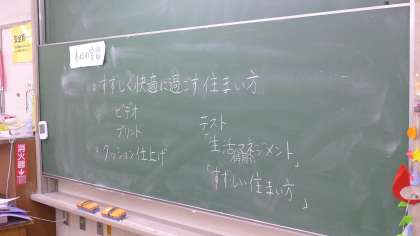 本時の学習
・すずしく快適に過ごす住まい方
ビデオ
プリント
・クッション仕上げ
テスト
「生活マネジメント」
「すずしい住まい方」
消火器